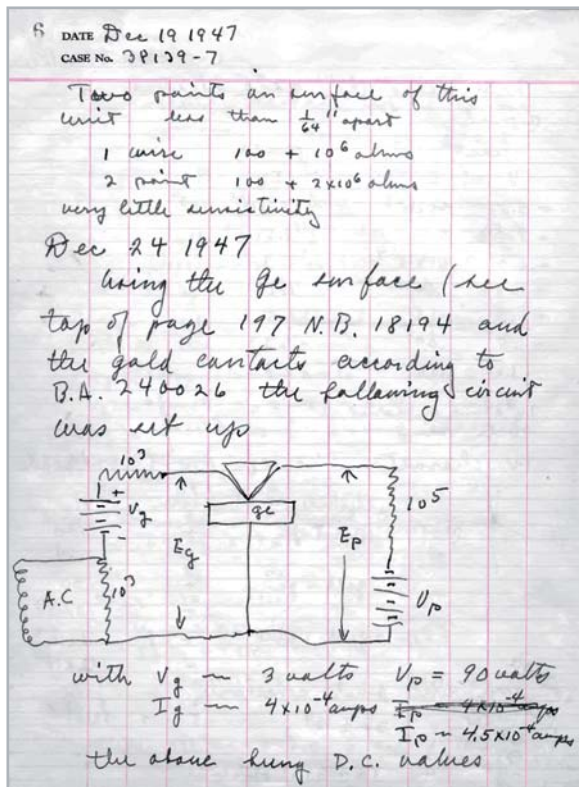 6 DATE Dec 19 1947
CASE No. 38139-7
Two points on surface of this
unit less than 1/64" apart
1 wire 100 + 10⁶ ohms
2 point 100 + 2×10⁶ ohms
very little sensitivity
Dec 24 1947
Using the ge surface (see
top of page 197 N.B. 18194 and
the gold contacts according to
B.A. 240026 the following circuit
was set up
10³
+
Vg
-
ge
10⁵
Eg
Ep
A.C
10³
Vp
with Vg ~ 3 volts Vp = 90 volts
Ig ~ 4×10⁻⁴ amps Ip ~ 4×10⁻⁴ amps
Ip ~ 4.5×10⁻⁴ amps
the above being D.C. values